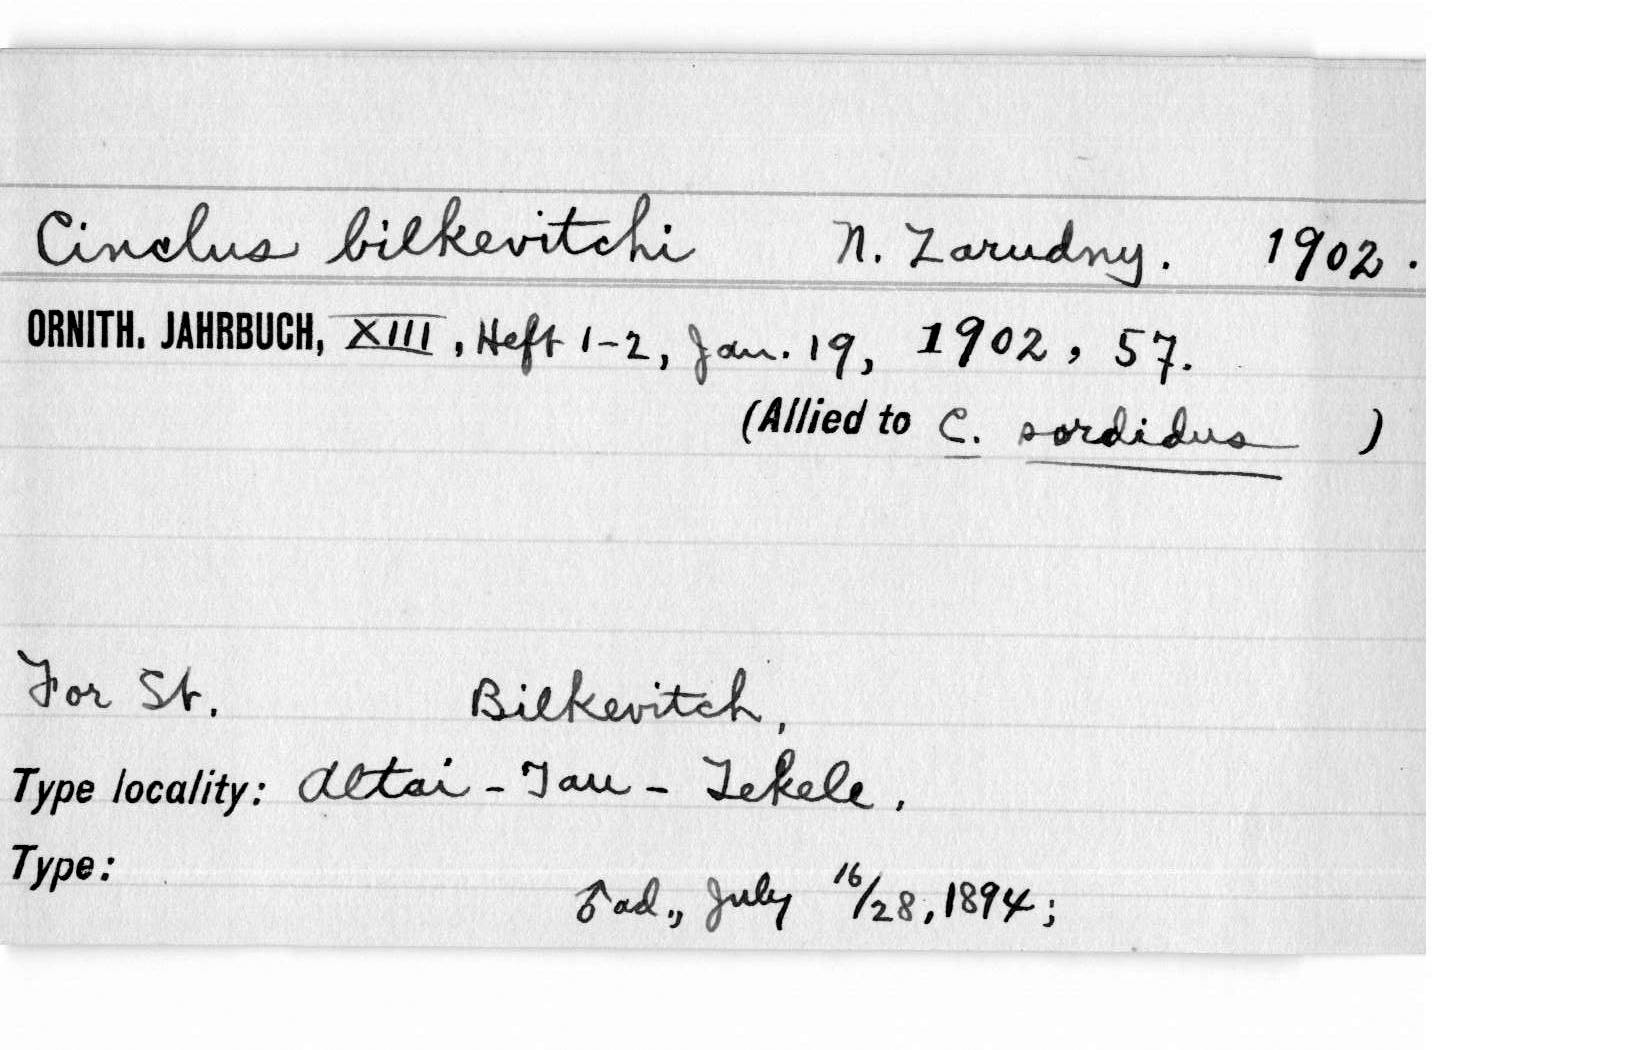 Cinclus bilkevitchi N. Zarudny. 1902.
ORNITH. JAHRBUCH, XIII, Heft 1-2, Jan. 19, 1902, 57.
(Allied to C. sordidus )
For St. Bilkevitch,
Type locality: Altai-Tau-Tekele.
Type:
♂ ad., July 16/28, 1894;